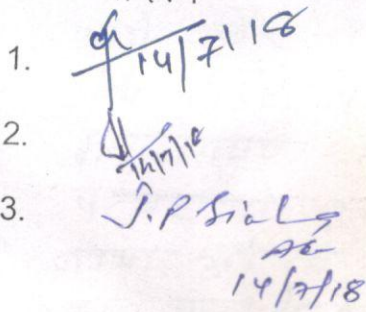 1. 14/7/18
2. 14/7/18
3. J.P Singh
AE
14/7/18